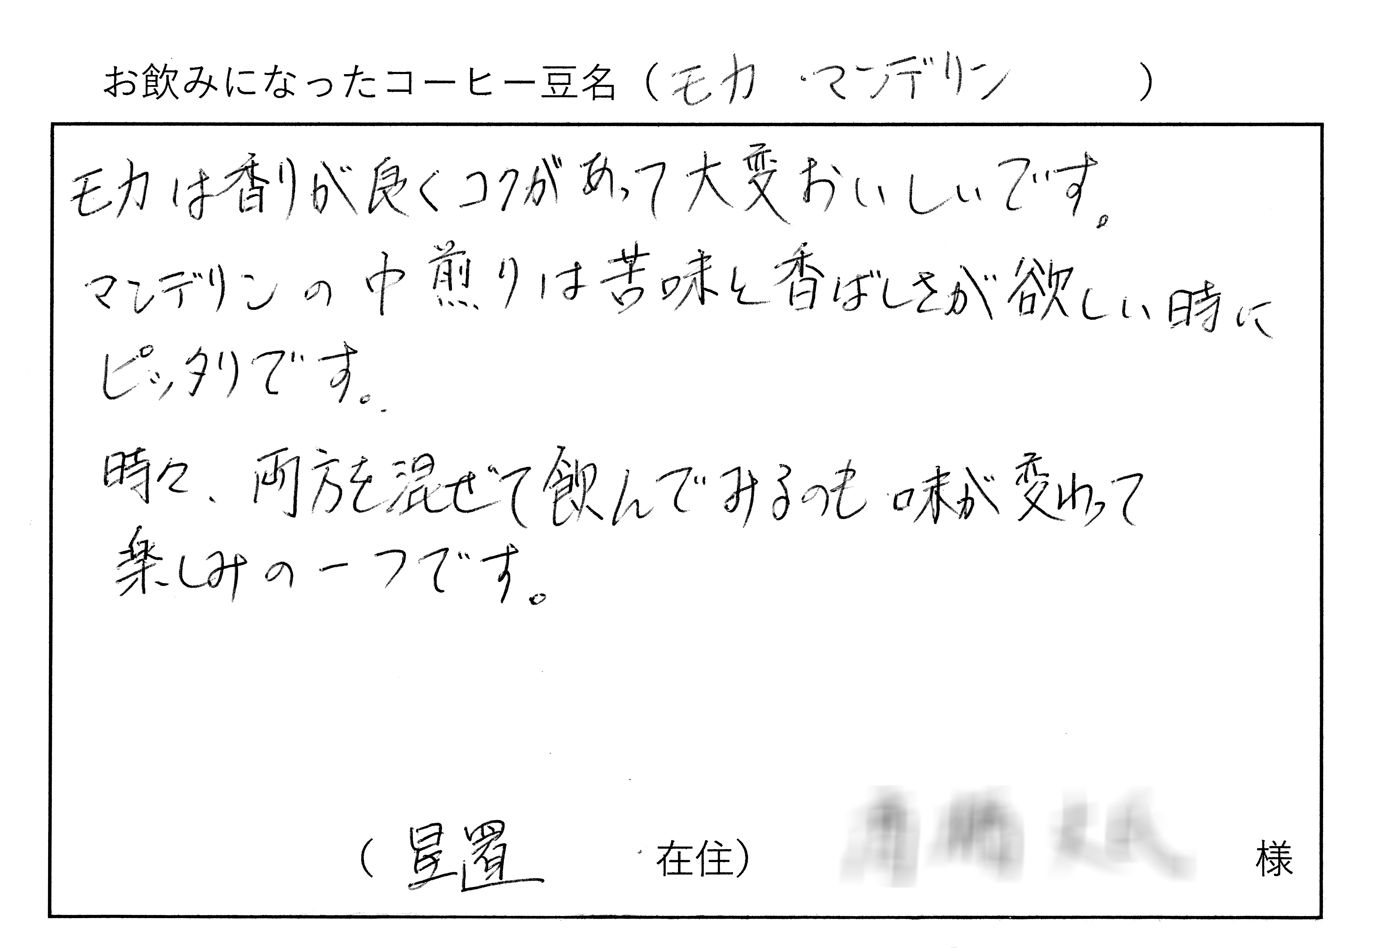 お飲みになったコーヒー豆名（モカ・マンデリン　）
モカは香りが良くコクがあって大変おいしいです。
マンデリンの中煎りは苦味と香ばしさが欲しい時に
ピッタリです。
時々、両方を混ぜて飲んでみるのも味が変わって
楽しみの一つです。
（星置　在住）　様